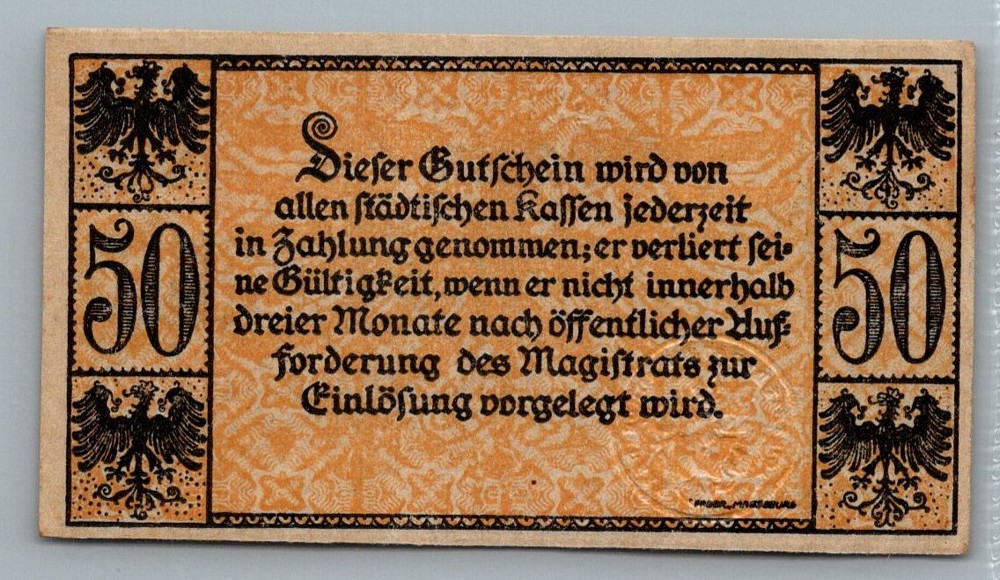 Dieser Gutschein wird von
allen städtischen Kassen jederzeit
in Zahlung genommen; er verliert sei-
ne Gültigkeit, wenn er nicht innerhalb
dreier Monate nach öffentlicher Auf-
forderung des Magistrats zur
Einlösung vorgelegt wird.
50
50
FABER, MAGDEBURG